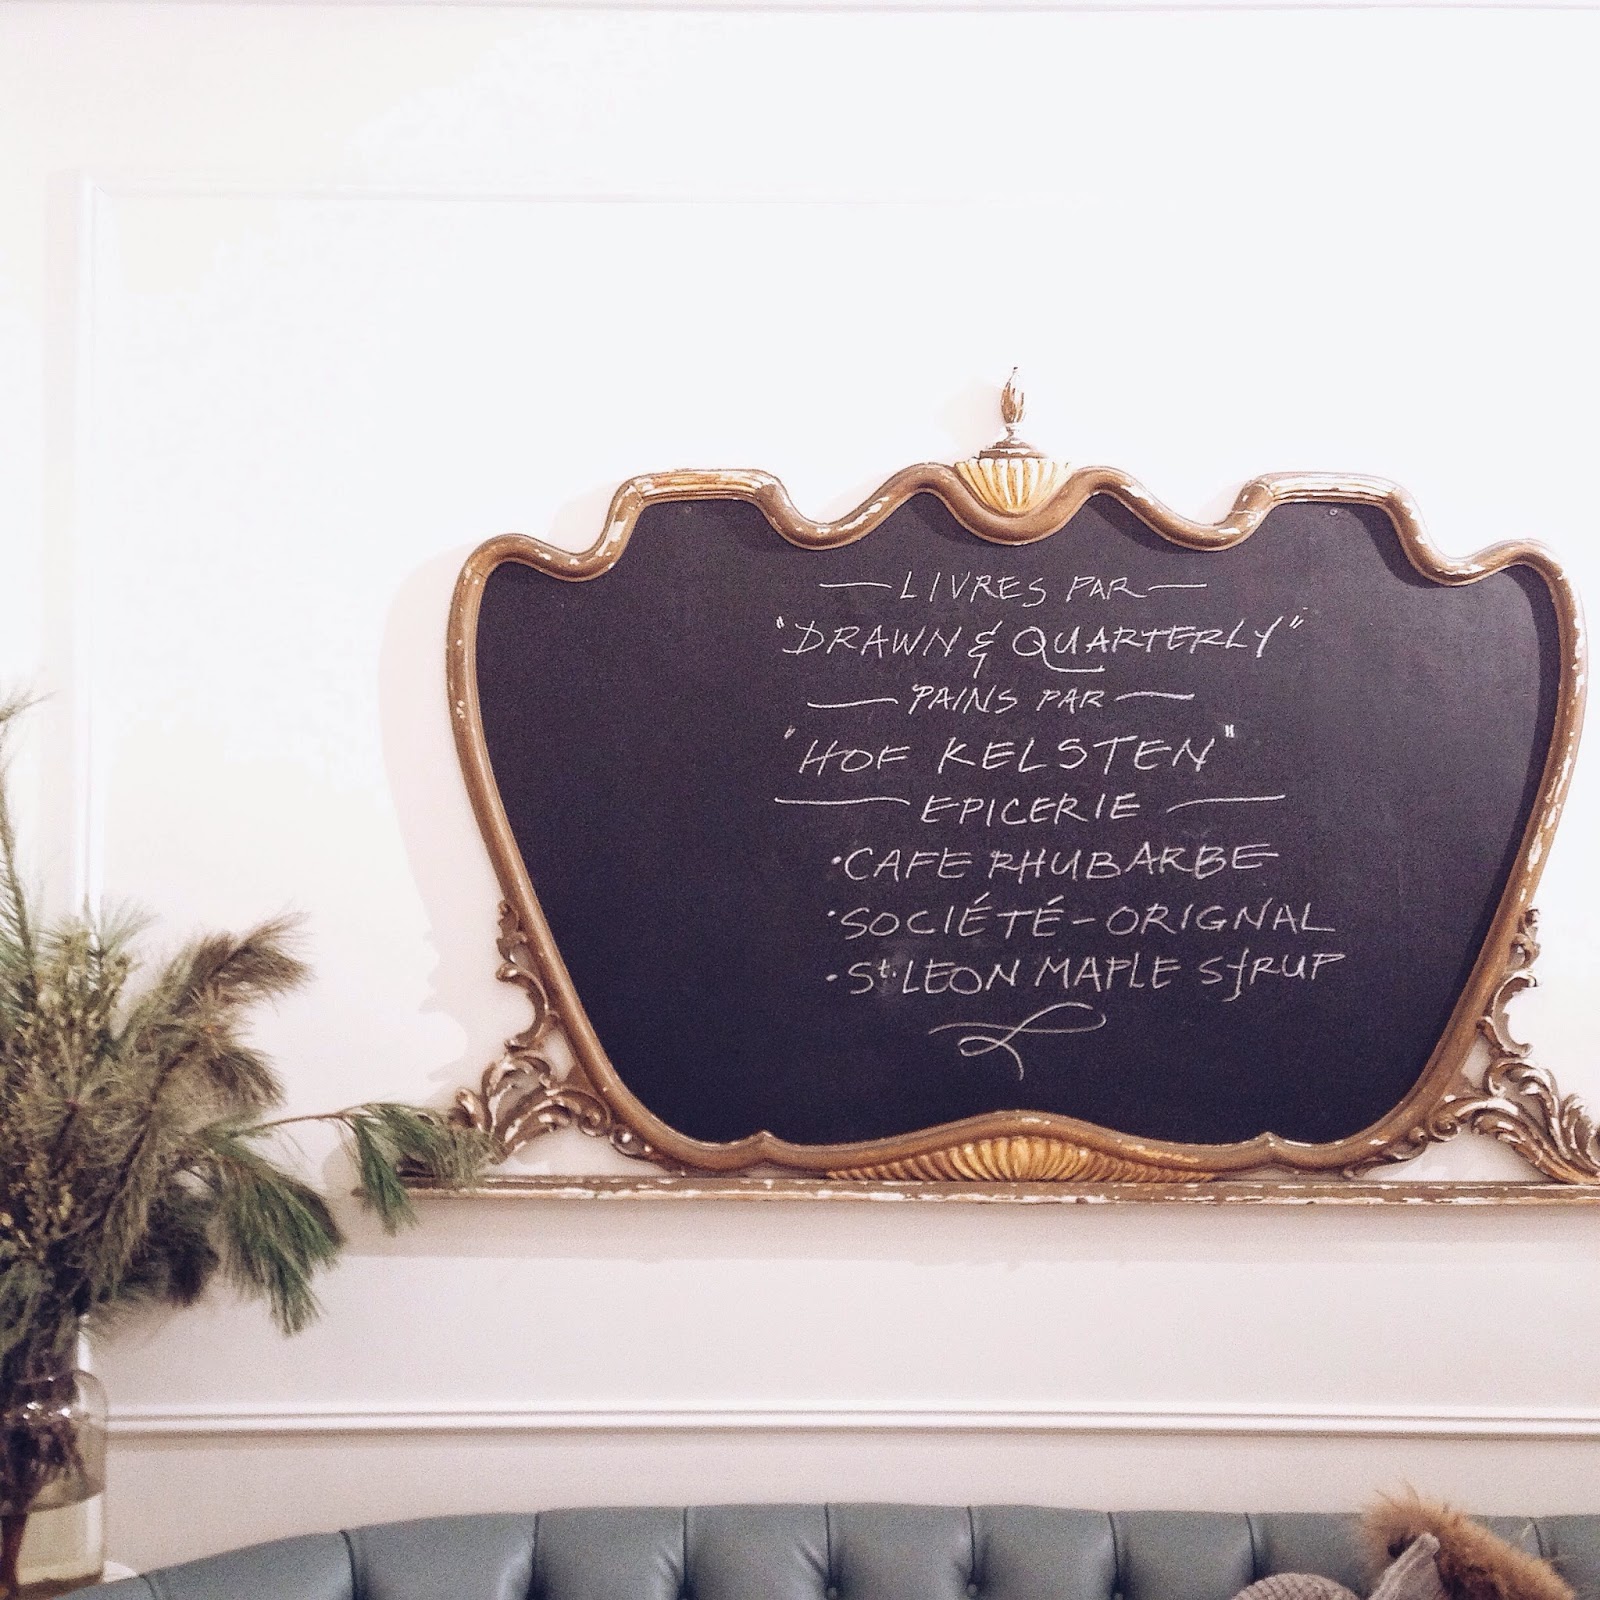 LIVRES PAR
"DRAWN & QUARTERLY"
PAINS PAR
"HOF KELSTEN"
EPICERIE
•CAFE RHUBARBE
•SOCIÉTÉ-ORIGNAL
•St. LEON MAPLE SYRUP